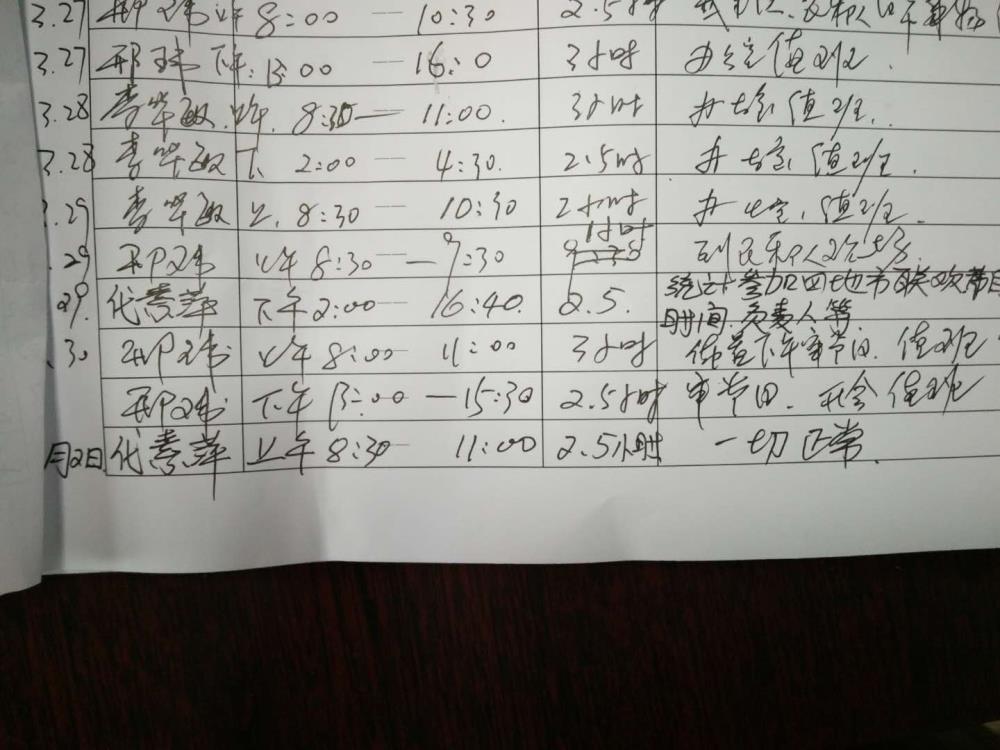 3.27 邢玮 上午 8:00 — 10:30 2.5小时
3.27 邢玮 下午: 13:00 — 16:0 3小时 办公室值班.
3.28 李华敏 上午. 8:30 — 11:00. 3小时 办公室值班.
3.28 李华敏 下 2:00 — 4:30. 2.5时 办公室值班.
.29 李华敏 上. 8:30 — 10:30 2小时 办公室.值班.
.29 邢玮 上午 8:30 — 9:30 1小时
29. 代素萍 下午2:00 — 16:40. 2.5. 统计参加四地市联欢节目
时间 负责人等
.30 邢玮 上午 8:00 — 11:00 3小时 下午审节目. 值班
邢玮 下午 13:00 — 15:30 2.5小时 审节目. 开会值班
月2日 代素萍 上午 8:30 — 11:00 2.5小时 一切正常.